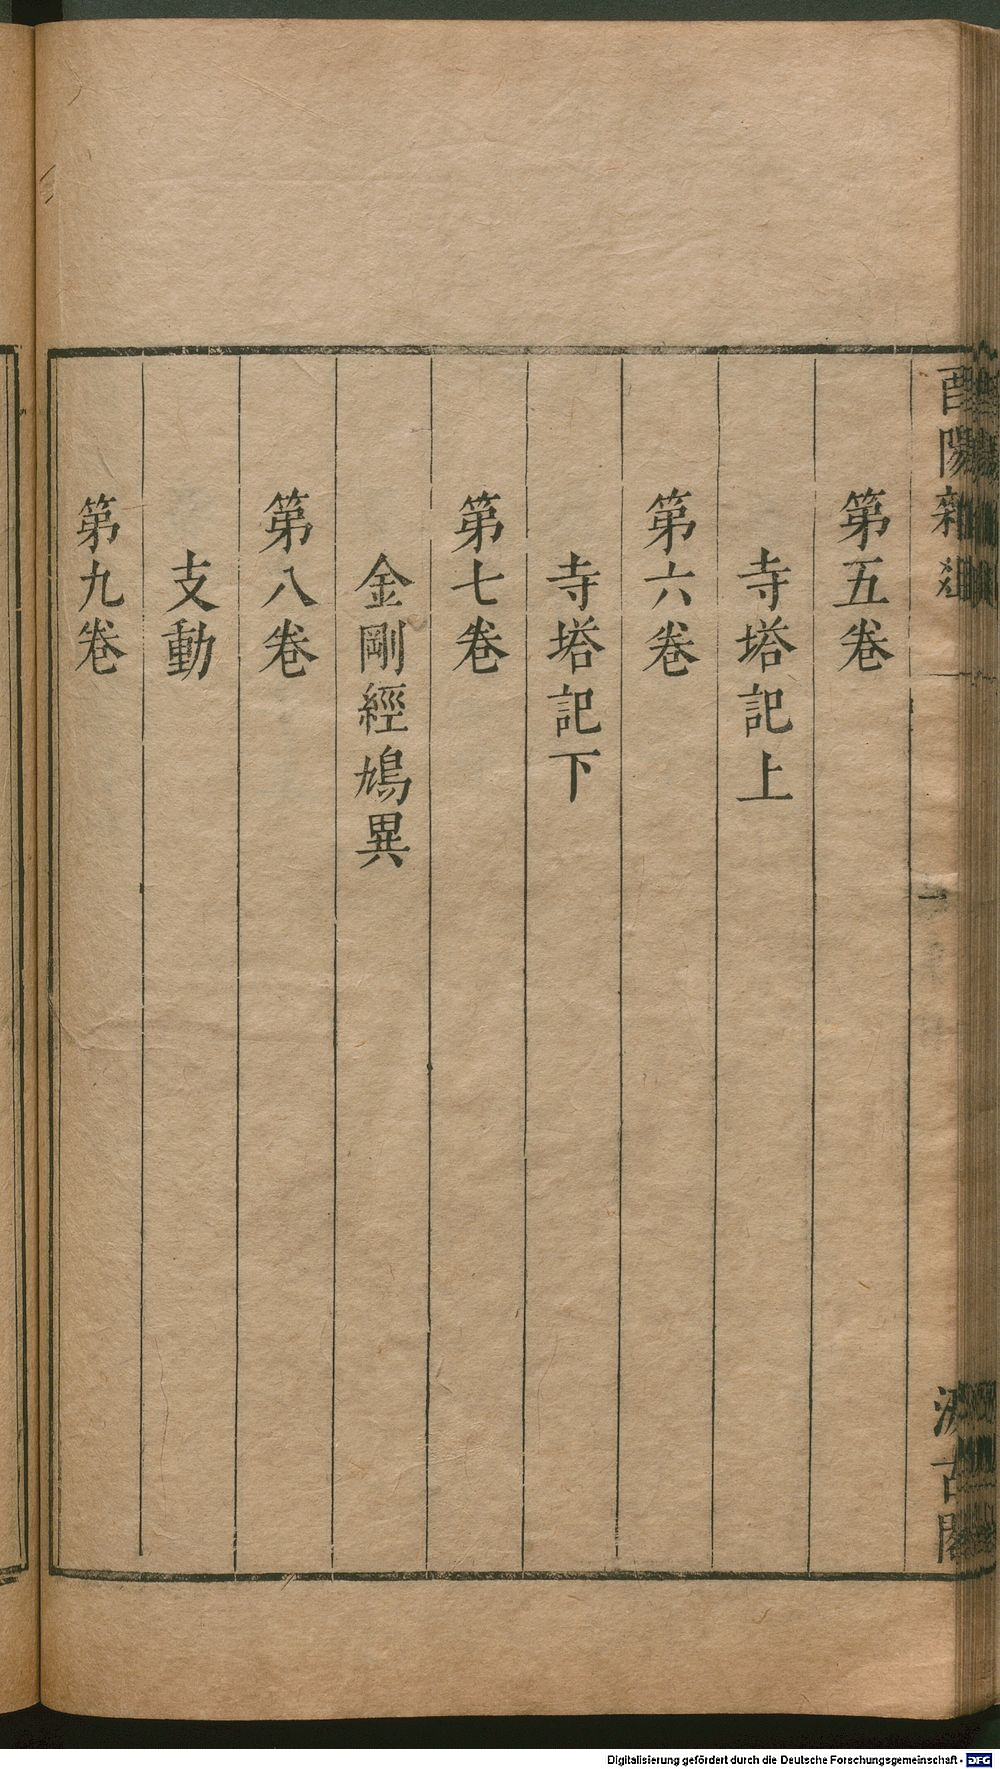 酉陽雜俎
一
汲古閣
第五卷
寺塔記上
第六卷
寺塔記下
第七卷
金剛經鳩異
第八卷
支動
第九卷
Digitalisierung gefördert durch die Deutsche Forschungsgemeinschaft - DFG